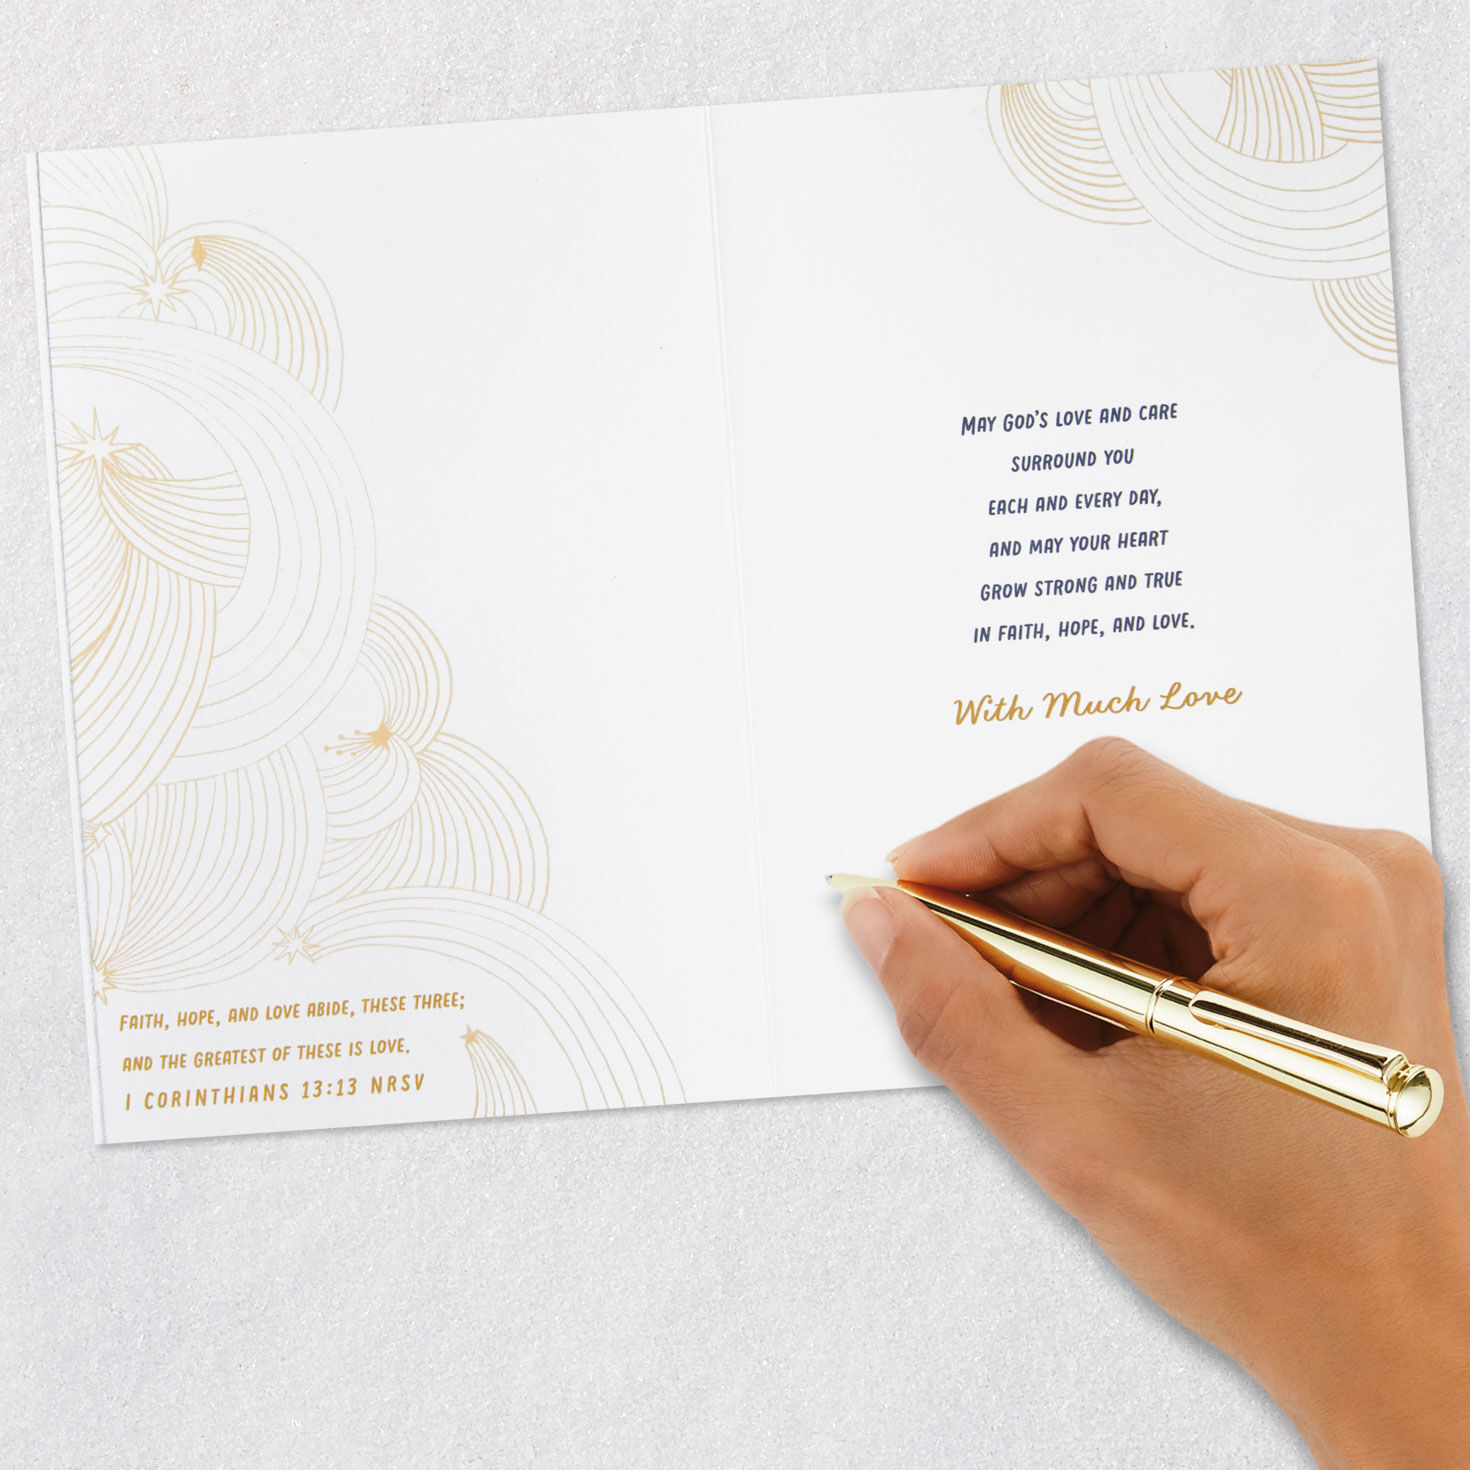 FAITH, HOPE, AND LOVE ABIDE, THESE THREE;
AND THE GREATEST OF THESE IS LOVE.
I CORINTHIANS 13:13 NRSV
MAY GOD'S LOVE AND CARE
SURROUND YOU
EACH AND EVERY DAY,
AND MAY YOUR HEART
GROW STRONG AND TRUE
IN FAITH, HOPE, AND LOVE.
With Much Love